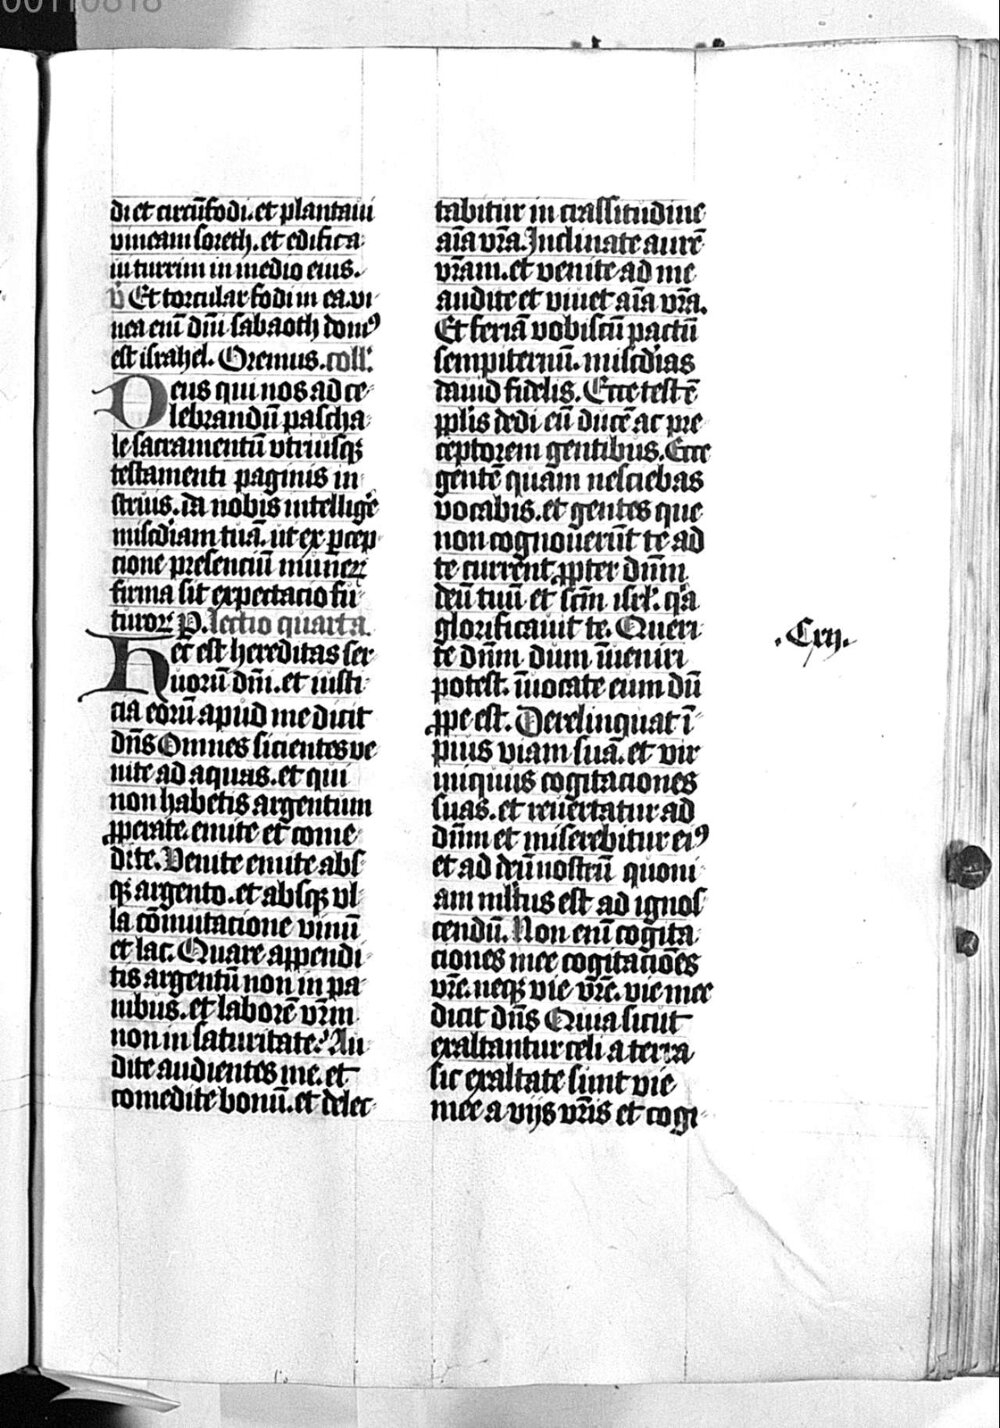 00110818
di et circūfodi. et plantaui
vineam soreth. et edifica
ui turrim in medio eius.
v̄ Et torcular fodi in ea. vi
nea enī dnī sabaoth domꝰ
est israhel. Oremus. coll'.
Deus qui nos ad ce
lebrandū pascha
le sacramentū vtriusqꝫ
testamenti paginis in
struis. da nobis intellige̾
misc̄diam tuā. ut ex ꝑcep
cione presenciū munerꝝ
firma sit expectacio fu
turoꝝ P. lectio quarta.
Hec est hereditas ser
uorū dnī. et iusti
cia eorū apud me dicit
dn̄s Omnes sicientes ve
nite ad aquas. et qui
non habetis argentum
ꝓperate. emite et come
dite. Venite emite abs
qꝫ argento. et absqꝫ vl
la cōmutacione vinū
et lac. Quare appendi
tis argentū non in pa
nibus. et laborē vr̄m
non in saturitate? Au
dite audientes me. et
comedite bonū. et delec
tabitur in crassitudine
aīa vr̄a. Inclinate aurē
vr̄am. et venite ad me
audite et viuet aīa vr̄a.
Et feriā vobiscū pactū
sempiternū. misc̄dias
dauid fidelis. Ecce testē
pplis dedi eū ducē ac pre
ceptorem gentibus. Ecce
gentē quam nesciebas
vocabis. et gentes que
non cognouerūt te ad
te current ꝓpter dnm̄
deū tuū et scm̄ isrl'. qͥa
glorificauit te. Queri
te dnm̄ dum īueniri
potest. īuocate eum dū
ꝓpe est. Derelinquat ī
pius viam suā. et vir
iniquus cogitaciones
suas. et reuertatur ad
dnm̄ et miserebitur eiꝰ
et ad deū nostrū quoni
am mlͭus est ad ignos
cendū. Non enī cogita
ciones mee cogitacōes
vr̄e. neqꝫ vie vr̄e. vie mee
dicit dn̄s Quia sicut
exaltantur celi a terra
sic exaltate sunt vie
mee a vijs vr̄is et cogi
.Cxij.